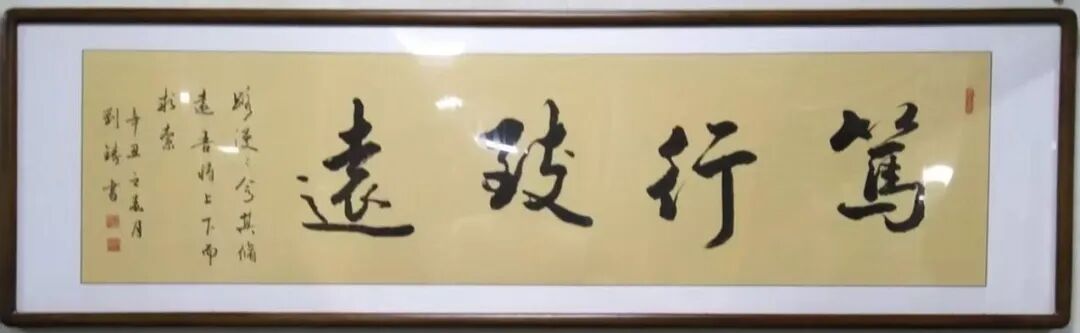 篤行致遠
路漫〻兮其脩
遠吾將上下而
求索
辛丑 月
劉 書